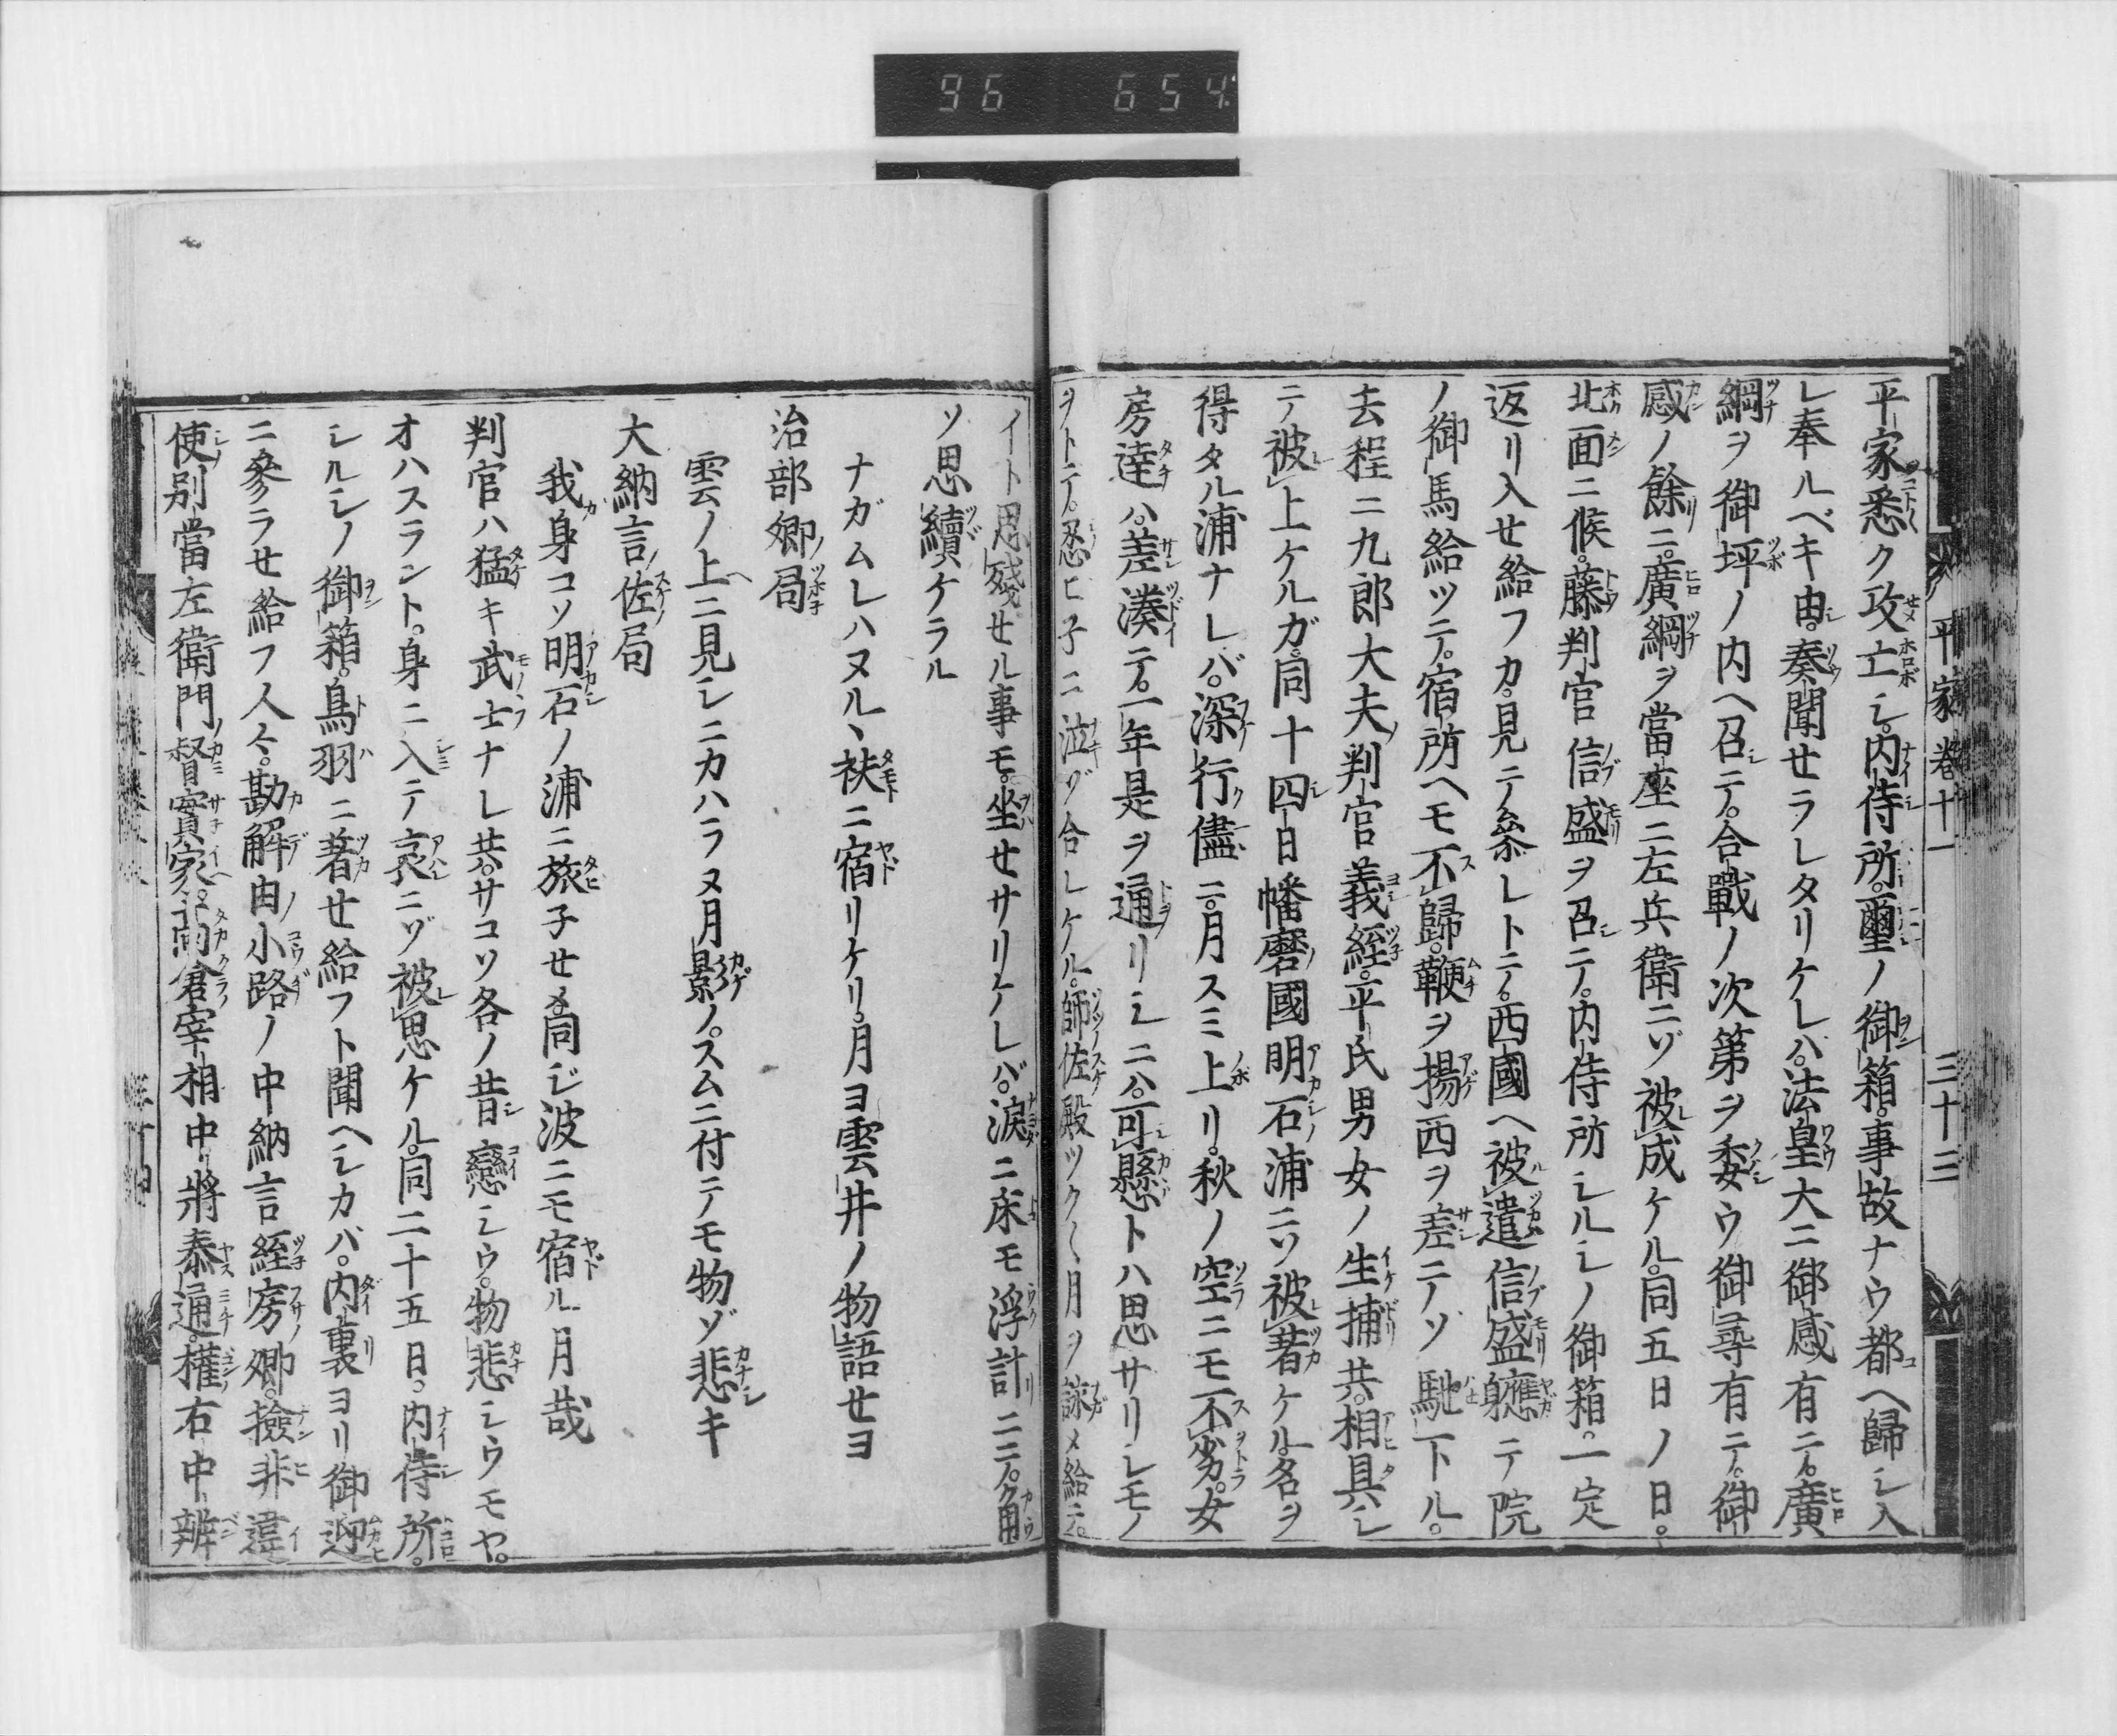 96 654
平家巻十一 三十三
平家悉ク攻亡シ。内侍所。璽ノ御箱。事故ナウ都ヘ歸シ入
レ奉ルベキ由。奏聞せラレタリケレハ。法皇大ニ御感有ニテ。廣
綱ヲ御坪ノ内ヘ召ニテ。合戰ノ次第ヲ委ウ御尋有ニテ。御
感ノ餘ニ。廣綱ヲ當座ニ左兵衛ニゾ被成ケル。同五日ノ日。
北面ニ候。藤判官信盛ヲ召ニテ。内侍所シルシノ御箱。一定
返リ入せ給フカ。見ニテ參レトニテ。西國ヘ被遣。信盛軈テ院
ノ御馬給ツニテ。宿所ヘモ不歸。鞭ヲ揚西ヲ差ニテソ馳下ル。
去程ニ九郎大夫判官義經。平氏男女ノ生捕共。相具シ
ニテ被上ケルガ。同十四日幡磨國明石浦ニソ被著ケル。名ヲ
得タル浦ナレバ。深行儘ニ。月スミ上リ。秋ノ空ニモ不劣。女
房達ハ。差湊ニテ。一年是ヲ通リシニハ。可懸トハ思サリシモノ
ヲトニテ。忍ヒ子ニ泣ゾ合レケル。師佐殿ツク〱月ヲ詠メ給ニテ。
イト思殘せル事モ。坐せサリケレバ。涙ニ床モ浮計ニニテ。角
ソ思續ケラル
ナガムレハヌルヽ袂ニ宿リケリ。月ヨ雲井ノ物語せヨ
治部卿ノ局
雲ノ上ニ見シニカハラヌ月影ノ。スムニ付ニテモ物ゾ悲キ
大納言佐局
我身コソ明石ノ浦ニ旅子せメ同ジ波ニモ宿ル月哉
判官ハ猛キ武士ナレ共。サコソ各ノ昔戀シウ。物悲シウモヤ。
オハスラント。身ニ入ニテ哀ニゾ被思ケル。同二十五日。内侍所。
シルシノ御箱。鳥羽ニ著せ給フト聞ヘシカバ。内裏ヨリ御迎
ニ參ラせ給フ人々。勘解由小路ノ中納言經房卿。撿非違
使別當左衛門督實家。高倉宰相中將泰通。權右中辨